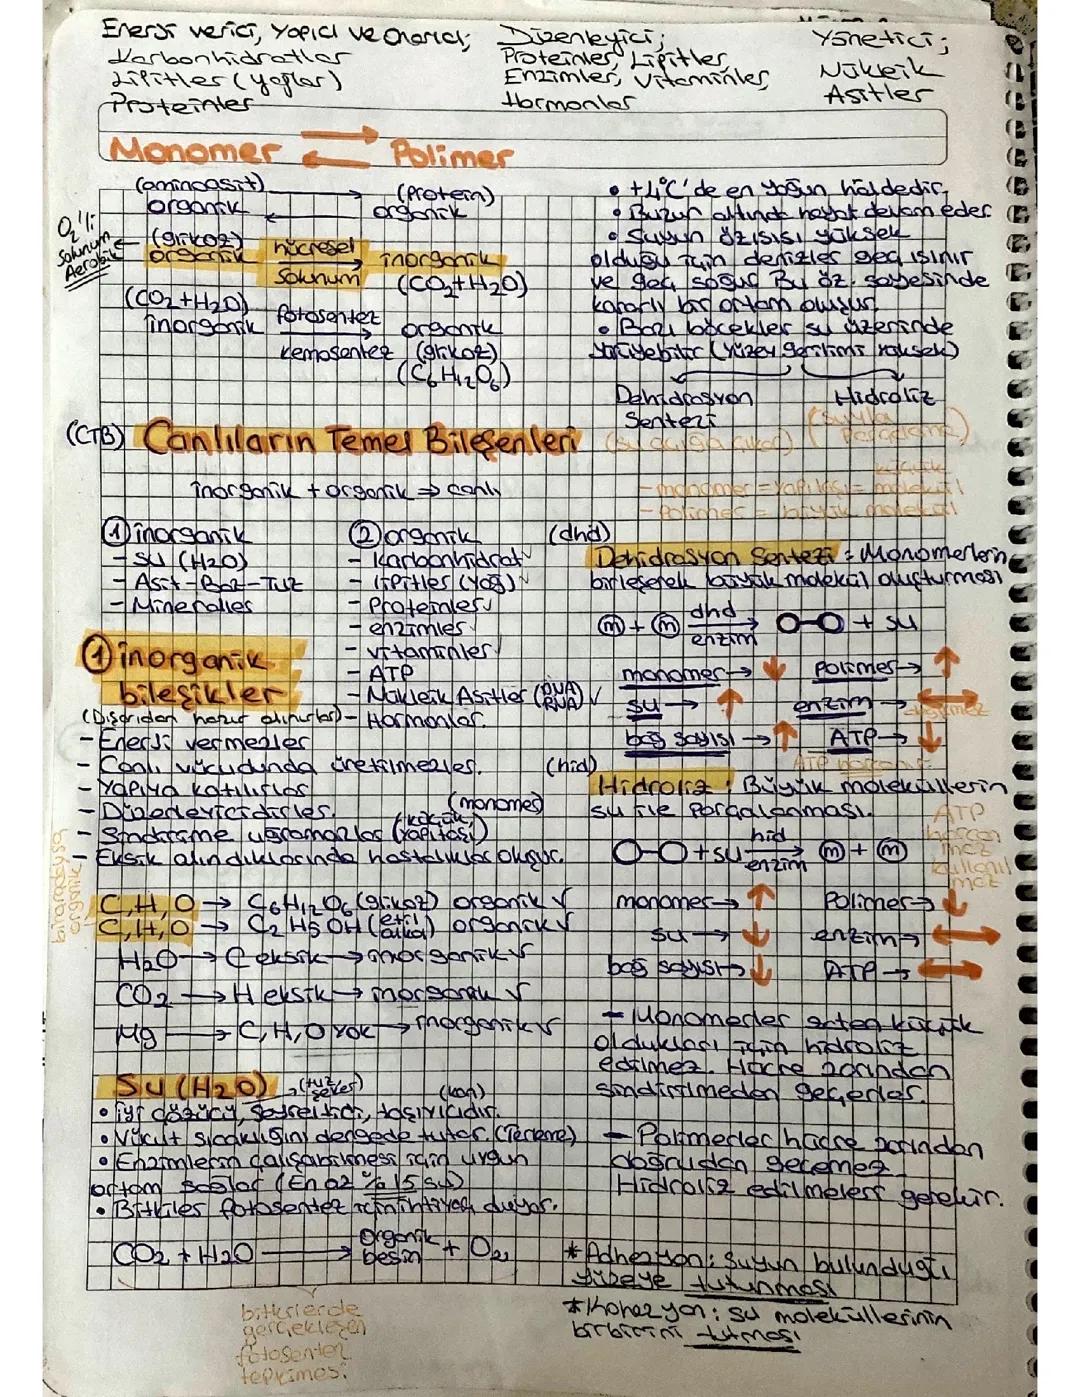 Enerji verici, Yapıcı ve Onarıcı;
Karbonhidratlar
Lipitler (yağlar)
Proteinler
Düzenleyici;
Proteinler, Lipitler
Enzimler, Vitaminler,
Hormonlar
Yönetici;
Nükleik
Asitler
Monomer Polimer
(aminoasit) (Protein)
organik organik
O2'li
Solunum
Aerobik
(glikoz) hücresel
organik Solunum inorganik
(CO2+H2O)
(CO2+H2O) fotosentez
inorganik organik
kemosentez (glikoz)
(C6H12O6)
• +4°C'de en yoğun haldedir.
• Buzun altında hayat devam eder
• Suyun özısısı yüksek
olduğu için denizler geç ısınır
ve geç soğur. Bu öz. sayesinde
kararlı bir ortam oluşur.
• Bazı böcekler su üzerinde
yürüyebilir (yüzey gerilimi yüksek)
Dehidrasyon Hidroliz
Sentezi
(su açığa çıkar) (suyla parçalama)
(CTB) Canlıların Temel Bileşenleri
inorganik + organik ⇒ canlı
- monomer = yapıtaşı = küçük molekül
- Polimer = büyük molekül
① inorganik
- Su (H2O)
- Asit-Baz-Tuz
- Mineraller
② organik
- Karbonhidrat √
- lipitler (yağ) √
- Proteinler √
- enzimler √
- vitaminler
- ATP
- Nükleik Asitler (DNA RNA) √
- Hormonlar.
① inorganik
bileşikler
(Dışarıdan hazır alınırlar)
- Enerji vermezler
- Canlı vücudunda üretilmezler.
- Yapıya katılırlar
- Düzenleyicidirler.
(monomer)
- Sindirime uğramazlar (küçük, yapıtaşı)
- Eksik alındıklarında hastalıklar oluşur.
(dhd)
Dehidrasyon Sentezi: Monomerlerin
birleşerek büyük molekül oluşturması
m + m dhd → O-O + su
enzim
monomer → ↓ Polimer → ↑
su → ↑ enzim → ↔ değişmez
bağ sayısı → ↑ ATP → ↓
(hid)
Hidroliz: Büyük moleküllerin
su ile parçalanması.
O-O + su hid → m + m
enzim
ATP
harcan
maz
kullanıl
maz
monomer → ↑ Polimer → ↓
su → ↓ enzim → ↔
bağ sayısı → ↓ ATP → ↔
bir aradaysa
organik
C,H,O → C6H12O6 (glikoz) organik √
C,H,O → C2H5OH (etil alkol) organik √
H2O → C eksik → inorganik √
CO2 → H eksik → inorganik √
Mg → C,H,O yok → inorganik √
- Monomerler zaten küçük
oldukları için hidroliz
edilmez. Hücre zarından
sindirilmeden geçerler.
- Polimerler hücre zarından
doğrudan geçemez
Hidroliz edilmeleri gerekir.
Su (H2O)
(kan)
• iyi çözücü, seyreltici, taşıyıcıdır.
• Vücut sıcaklığını dengede tutar. (Terleme)
• Enzimlerin çalışabilmesi için uygun
ortam sağlar (En az %15 su)
• Bitkiler fotosentez için ihtiyaç duyar.
CO2 + H2O → Organik besin + O2
bitkilerde
gerçekleşen
fotosentez
tepkimesi
* Adhezyon: Suyun bulunduğu
yüzeye tutunması
* Kohezyon: su moleküllerinin
birbirini tutması